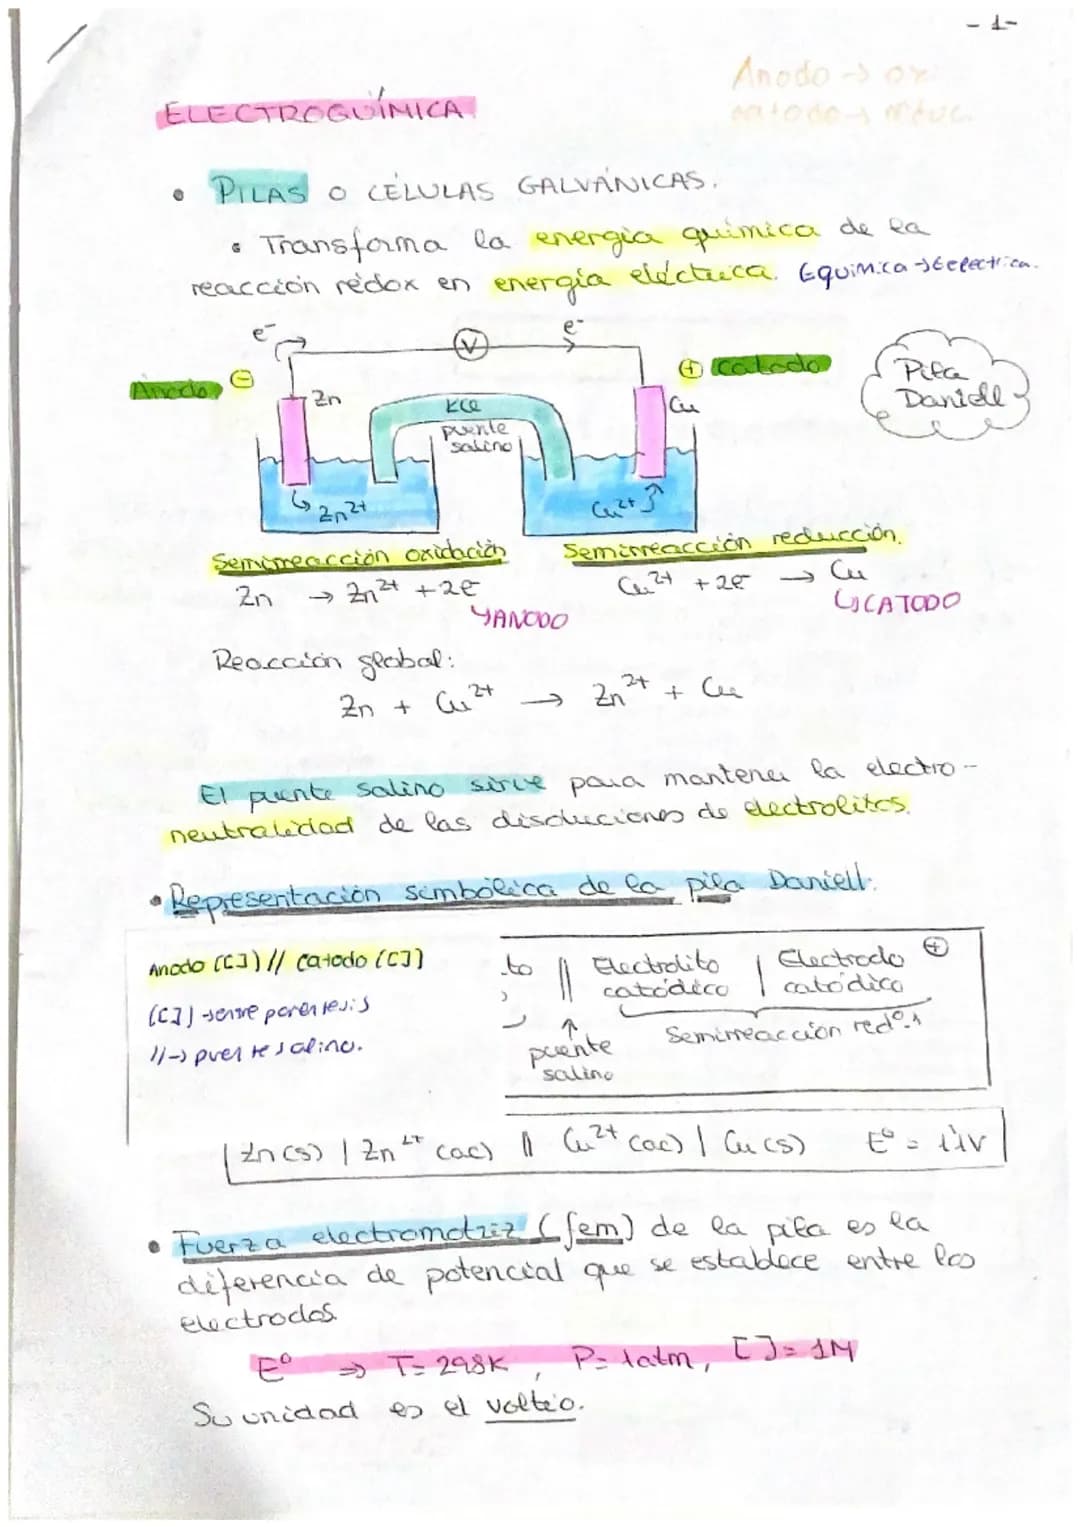 - 1 -
Anodo → ox
catodo → reduc
ELECTROQUÍMICA
• PILAS O CÉLULAS GALVÁNICAS.
• Transforma la energía química de la
reacción redox en energía eléctrica. Equímica → Eeléctrica.
e⁻
V
e⁻
Anodo ⊖
Zn
KCl
puente
salino
⊕ Catodo
Cu
Pila
Daniell
Zn²⁺
Cu²⁺
Semirreacción oxidación
Semirreacción reducción.
Zn → Zn²⁺ + 2e⁻
Cu²⁺ + 2e⁻ → Cu
↳ANODO
↳CATODO
Reacción global:
Zn + Cu²⁺ → Zn²⁺ + Cu
El puente salino sirve para mantener la electro-
neutralidad de las disoluciones de electrolitos.
• Representación simbólica de la pila Daniell.
Anodo ([C]) // Catodo ([C])
([C]) → entre paréntesis
// → puente salino.
to || Electrolito | Electrodo ⊕
catódico | catódico
↑
puente
salino
Semirreacción redº.
Zn(s) | Zn²⁺ (ac) || Cu²⁺ (ac) | Cu(s) E⁰ = 1'1V
• Fuerza electromotriz (fem) de la pila es la
diferencia de potencial que se establece entre los
electrodos.
E⁰ ⇒ T = 298K, P = 1atm, [ ] = 1M
Su unidad es el voltio.